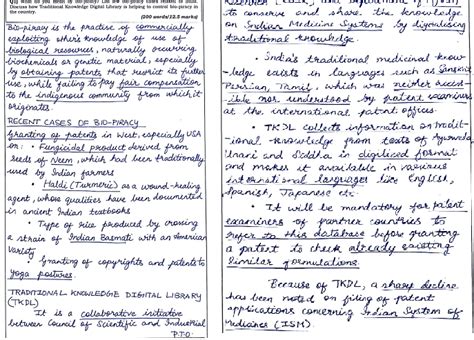 Q) What do you mean by bio-piracy? List few bio-piracy cases related to India.
Discuss how Traditional Knowledge Digital Library is helping to control bio-piracy in
the country.
(200 words/12.5 marks)
Bio-piracy is the practise of commercially
exploiting other's knowledge of use of
biological resources, naturally occurring
biochemicals or genetic material, especially
by obtaining patents that restrict its further
use, while failing to pay fair compensation
to the indigenous community from which it
originates.
RECENT CASES OF BIO-PIRACY
Granting of patents in West, especially USA
on:
• Fungicidal product derived from
seeds of Neem, which had been traditionally
used by Indian farmers
• Haldi (Turmeric) as a wound-healing
agent, whose qualities have been documented
in ancient Indian textbooks
• Type of rice produced by crossing
a strain of Indian Basmati with an American
Variety
Granting of copyrights and patents to
Yoga postures.
TRADITIONAL KNOWLEDGE DIGITAL LIBRARY
(TKDL)
It is a collaborative initiative
between Council of Scientific and Industrial
P.T.O.
to conserve and share the knowledge
on Indian Medicine Systems by digitalising
traditional knowledge.
• India's traditional medicinal know-
ledge exists in languages such as Sanskrit
Persian, Tamil, which was neither accessi-
ble nor understood by patent examiners
at the international patent offices.
• TKDL collects information on tradit-
ional-knowledge from texts of Ayurveda,
Unani and Siddha in digitized format
and makes it available in various
international languages like English,
Spanish, Japanese etc.
• It will be mandatory for patent
examiners of partner countries to
refer to this database before granting
a patent to check already existing
similar formulations.
Because of TKDL, a sharp decline
has been noted on filing of patent
applications concerning Indian System of
Medicines (ISM).